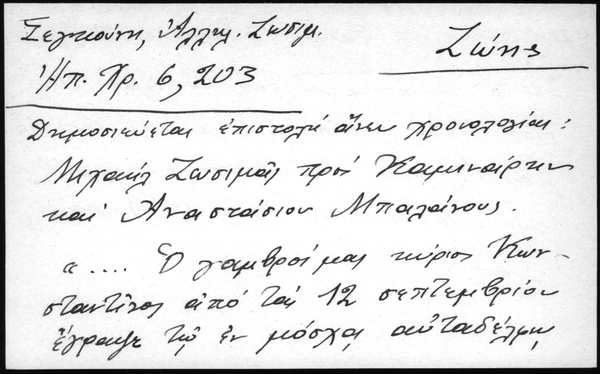 Σεγκούνη, Ἀλληλ. Ζωσιμ.
Ζώης
Ἠπ. Χρ. 6, 203
Δημοσιεύεται ἐπιστολή ἄνευ χρονολογίας:
Μιχαήλ Ζωσιμᾶς πρός Καμινάρην
καί Ἀναστάσιον Μπαλάνους.
«.... Ὁ γαμβρός μας κύριος Κων-
σταντῖνος ἀπό τάς 12 σεπτεμβρίου
ἔγραψε τῷ ἐν μόσχᾳ αὐταδέλφῳ